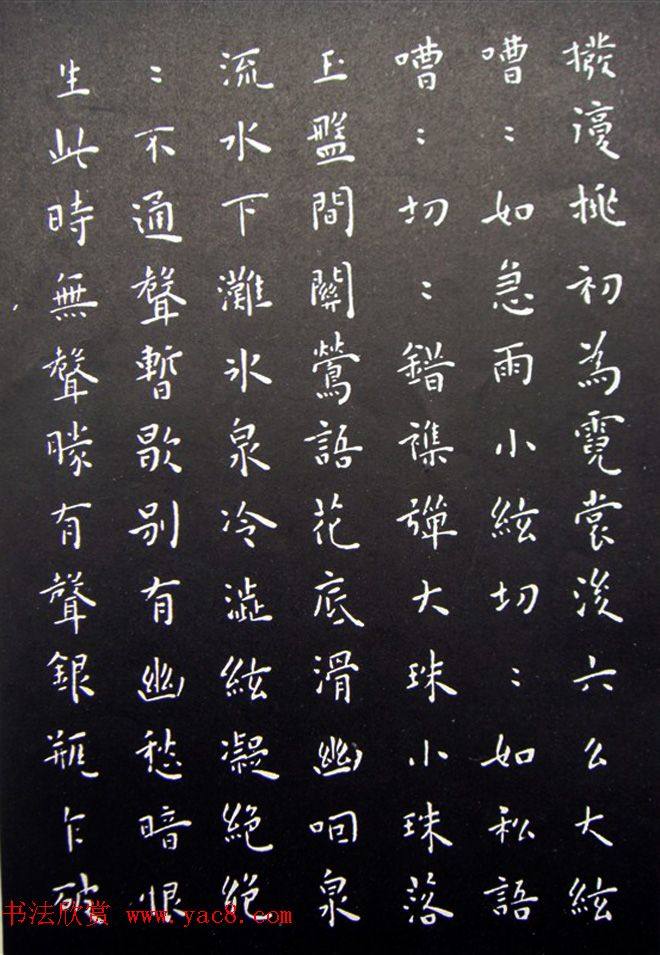 撥復挑初為霓裳後六么大絃
嘈〻如急雨小絃切〻如私語
嘈〻切〻錯雜彈大珠小珠落
玉盤間關鶯語花底滑幽咽泉
流水下灘氷泉冷澀絃凝絕絕
〻不通聲暫歇別有幽愁暗恨
生此時無聲勝有聲銀瓶乍破
书法欣赏 www.yac8.com